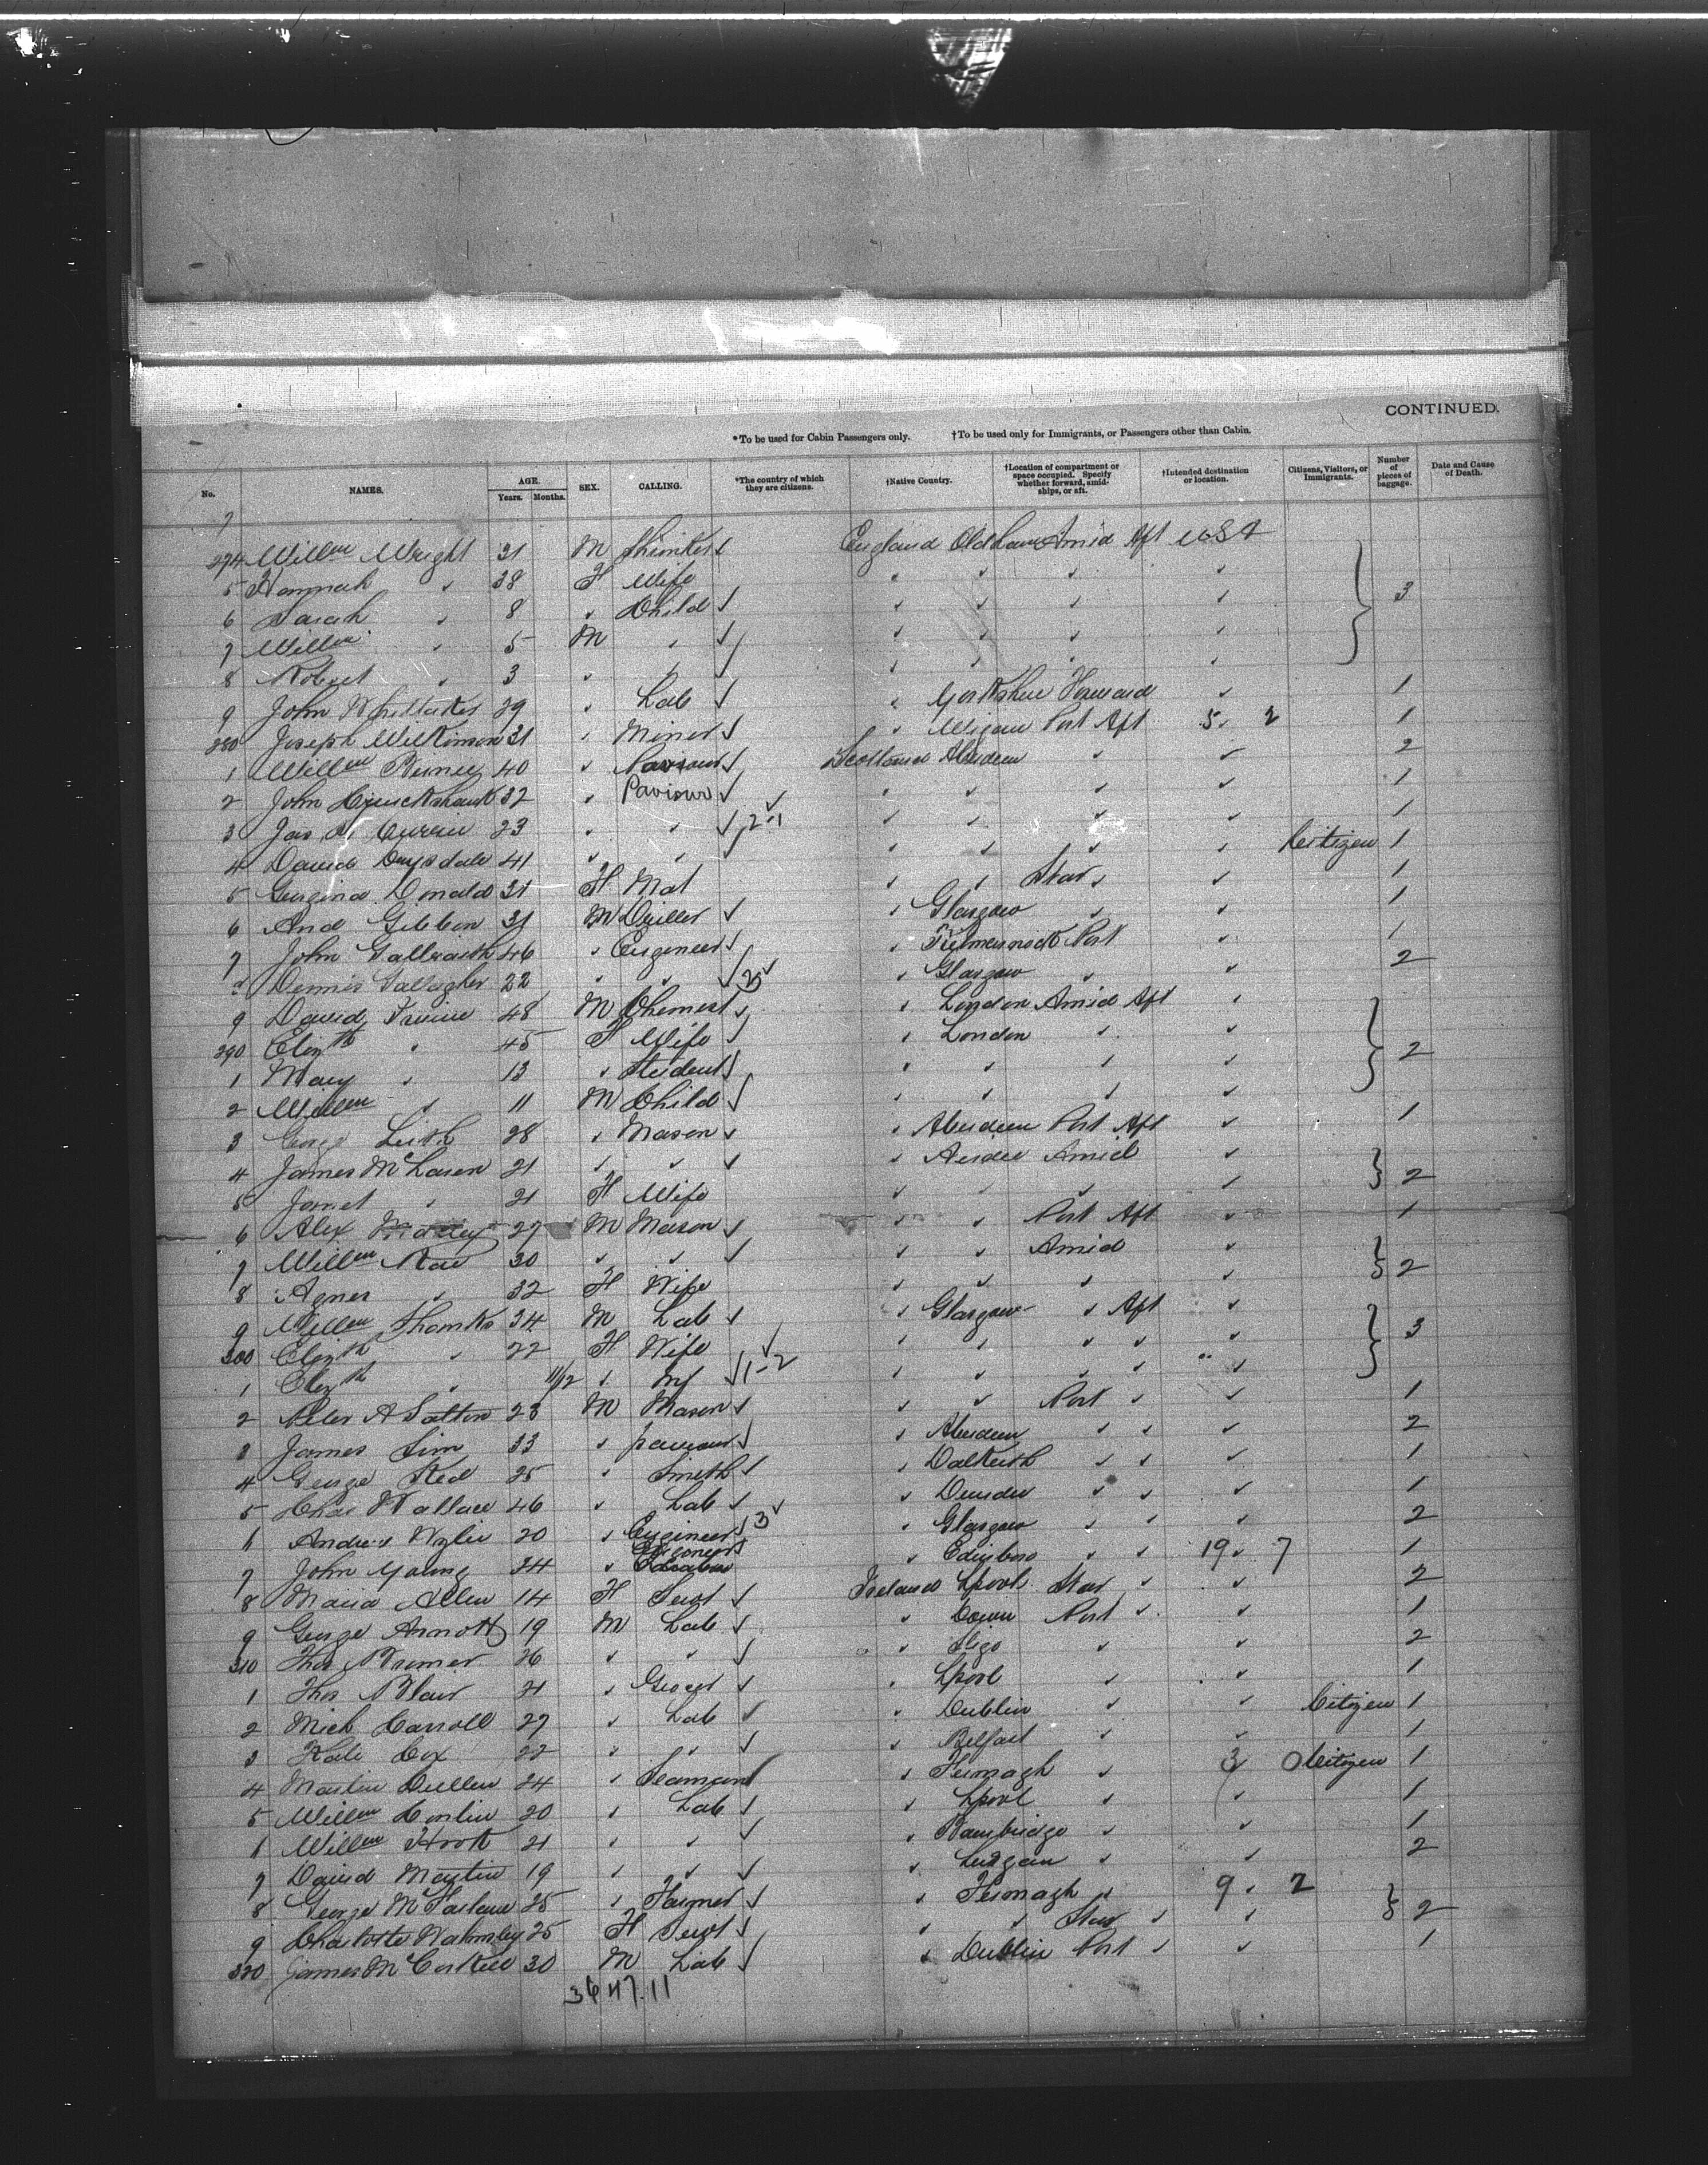 CONTINUED.
*To be used for Cabin Passengers only. †To be used only for Immigrants, or Passengers other than Cabin.
No. NAMES. AGE. Years. Months. SEX. CALLING. *The country of which they are citizens. †Native Country. †Location of compartment or space occupied. Specify whether forward, amidships, or aft. †Intended destination or location. Citizens, Visitors, or Immigrants. Number of pieces of baggage. Date and Cause of Death.
274 Willm Wright 31 M England Oldham Amid Aft USA
5 Hannah " 38 F Wife " " " "
6 Sarah " 8 " Child " " " " 3
7 Willm " 5 M " " " " "
8 Robert " 3 " " " " " "
9 John Whittaker 29 " Lab " Yorkshire Forward " 1
280 Joseph Wilkinson 31 " Miner " Wigan Port Aft 5 2 1
1 Willm 40 " Paviour Scotland Aberdeen " " 2
2 John Cruickshank 32 " Paviour " " " " 1
3 Jas Currie 23 " " 2-1 " " " " 1
4 David Drysdale 41 " " " " " " Citizen 1
5 Georgina Donald 31 F Mat " " Star " 1
6 And Gibbon 31 M Driller " Glasgow " " 1
7 John Galbraith 46 " Engineer " Kilmarnock Port " 1
8 Dennis Gallagher 22 " " " Glasgow " " 2
9 David Irvine 48 M Chemist " London Amid Aft "
290 Elizth " 45 F Wife " London " "
1 Mary " 13 " Student " " " " 2
2 Willm " 11 M Child " " " "
3 George Leith 28 " Mason " Aberdeen Port Aft " 1
4 James McLaren 21 " " " Amid "
5 Janet " 21 F Wife " " " " 2
6 Alex 27 M Mason " " Port Aft " 1
7 Willm Rae 30 " " " " Amid "
8 Agnes " 32 F Wife " " " " 2
9 Willm Thomks 34 M Lab " Glasgow " Aft "
300 Elizth " 22 F Wife " " " " " 3
1 Elizth " 11/12 " Inf 1-2 " " " " "
2 Peter A 23 M Mason " " Port " " 1
3 James Sim 33 " paviour " Aberdeen " " " 2
4 George 25 " Smith " Dalkeith " " " 1
5 Chas Wallace 46 " Lab " Dundee " " " 1
6 Andrew Wylie 20 " Engineer 3 " Glasgow " " " 2
7 John Young 34 " Engineer " Edinboro " " 19 7 1
8 Maria Allen 14 F Servt Ireland Lpool Star " " 2
9 George Arnott 19 M Lab " Down Port " " 1
310 Thos 26 " " " Sligo " " 2
1 Thos Blair 21 " Grocer " Lpool " " 1
2 Mich Carroll 27 " Lab " Dublin " " Citizen 1
3 Kate Cox 22 " " " Belfast " " 1
4 Martin Cullen 24 " Seaman " Fermagh " 3 0 Citizen 1
5 Willm Conlin 20 " Lab " Lpool " " 1
6 Willm Hook 21 " " " Banbridge " " 1
7 David Martin 19 " " " Lurgan " " 2
8 George McFarlane 25 " Farmer " Fermagh " 9 2
9 Charlotte Walmsley 25 F Servt " " Star " " 2
320 James McCorkell 30 M Lab " Dublin Port " " 1
36 47.11